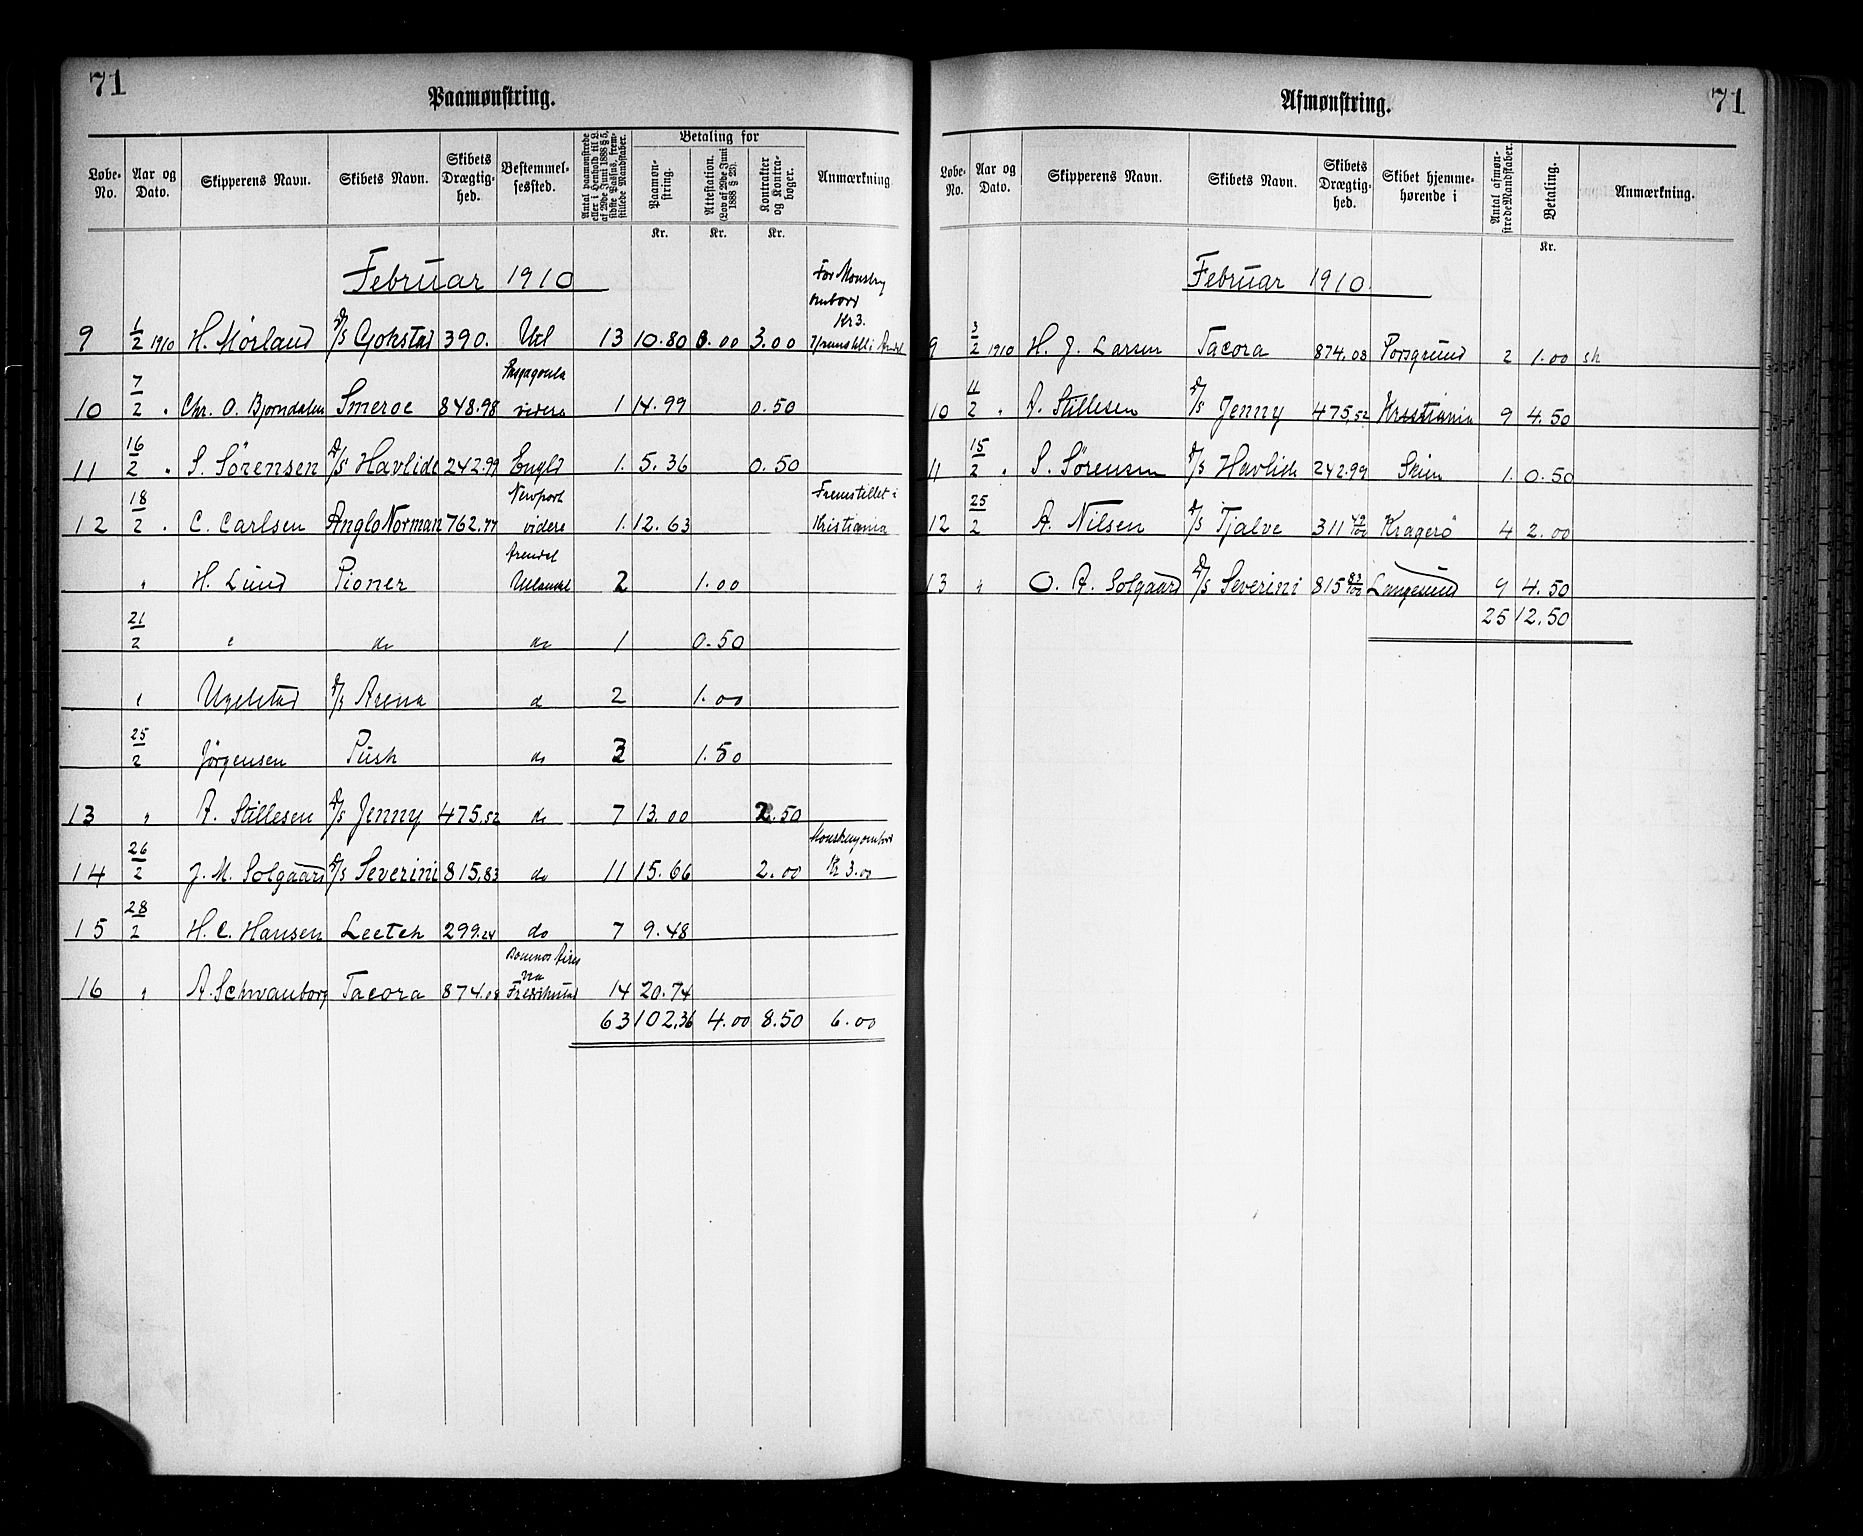 71
Paamønstring.
Løbe-No. Aar og Dato. Skipperens Navn. Skibets Navn. Skibets Drægtig-hed. Bestemmel-sessted. Antal paamønstrede eller i Henhold til L. af 29de Juni 1888 § 5, sidste Passus, frem-stillede Mandskaber. Betaling for Paamøn-string. Attestation. (Lov af 29de Juni 1888 § 23). Kontrakter og Kontra-bøger. Anmærkning
Kr. Kr. Kr.
Februar 1910
For Monstrg
ombord
Kr 3.
9 1/2 1910 H. Mørland D/S Gokstad 390. Utl 13 10.80 0.00 3.00
10 7/2 " Chr. O. Bjørndalen Smeroe 848.98 videre 1 14.99 0.50
11 16/2 " S. Sörensen D/S Havlide 242.99 Engld 1. 5.36 0.50
12 18/2 " C. Carlsen Anglo Norman 762.77 Newport videre 1. 12.63 Fremstillet i Kristiania
" H. Lund Pioner Arendal Utlandet 2 1.00
21/2 " do do 1 0.50
" Ugelstad D/S Arena d 2 1.00
25/2 Jørgensen Push do 3 1.50
13 " A. Stillesen D/S Jenny 475.52 do 7 13.00 2.50
14 26/2 J. M. Solgaard D/S Severini 815.83 do 11 15.66 2.00 Monstring ombord Kr 3.00
15 28/2 H. C. Hansen Leetch 299.24 do 7 9.48
16 " A. Schwanborg Tacora 874.08 Buenos Aires via Fredrikstad 14 20.74
63 102.36 4.00 8.50 6.00
71
Afmønstring.
Løbe-No. Aar og Dato. Skipperens Navn. Skibets Navn. Skibets Drægtig-hed. Skibet hjemme-hørende i Antal afmøn-strede Mandskaber. Betaling. Anmærkning.
Kr.
Februar 1910.
9 3/2 1910 H. J. Larsen Tacora 874.08 Porsgrund 2 1.00 sk
10 11/2 " A. Stillesen D/S Jenny 475,52 Kristiania 9 4.50
11 15/2 " S. Sørensen D/S Havlide 242.99 Skien 1. 0.50
12 25/2 A. Nilsen D/S Tjalve 311 49/100 Kragerö 4 2.00
13 " O. A. Solgaard D/S Severini 815 83/100 Langesund 9 4.50
25 12.50